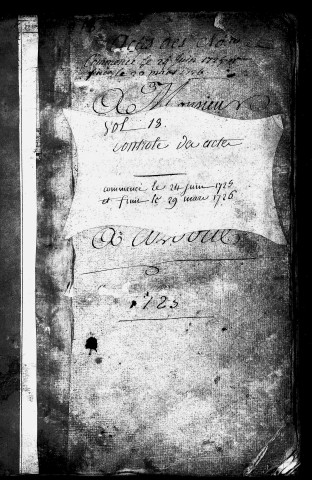 Actes des
Commence le 24 Juin 1725 et
finis le 29 mars 1726
A Monsieur
Vol 13.
Controle des actes
commence le 24 juin 1725
et fini le 29 mars 1726
A
1725